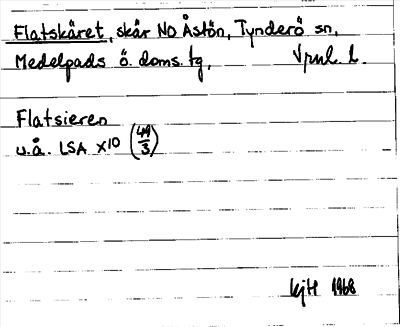 Flatskäret, skär NO Åstön, Tynderö sn,
Medelpads ö. doms. tg, Vrnl. l.
Flatsieren
u.å. LSA X10 (49/3)
1968